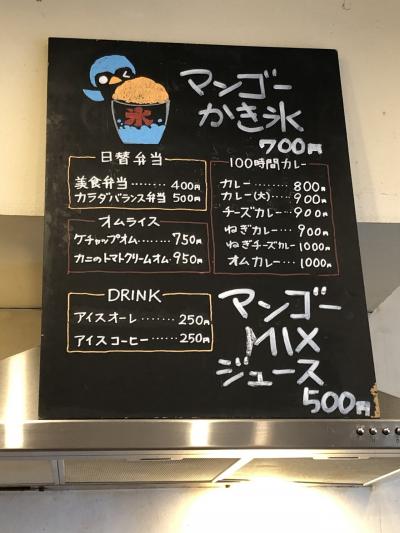 氷
マンゴー
かき氷
700円
日替弁当
美食弁当………400円
カラダバランス弁当 500円
オムライス
ケチャップオム………750円
カニのトマトクリームオム・950円
100時間カレー
カレー………800円
カレー(大)………900円
チーズカレー………900円
ねぎカレー………900円
ねぎチーズカレー1000円
オムカレー………1000円
DRINK
アイスオーレ………250円
アイスコーヒー……250円
マンゴー
MIX
ジュース
500円